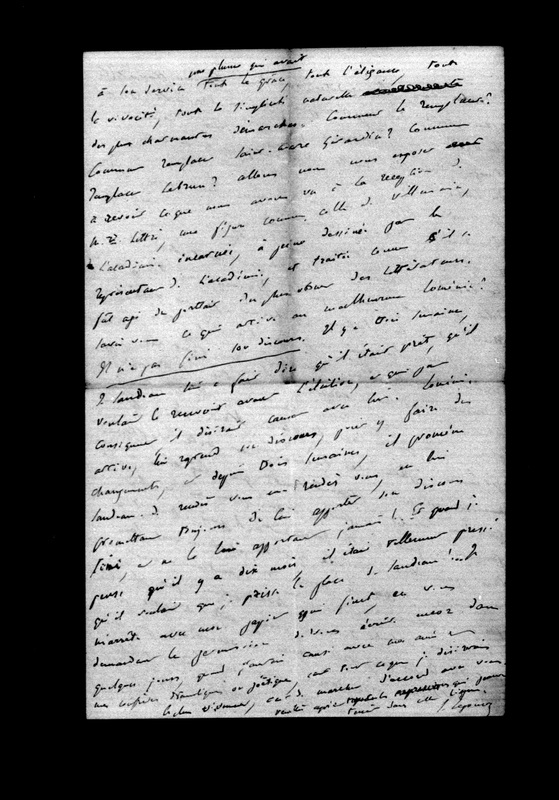 une plume qui avait
à son service tout la grâce, tout l'élégance, tout
le vivacité, tout le naturelle
des plus charmantes Comment le remplacer?
Comment remplacer Saint-Marc Girardin? Comment
remplacer Lebrun? allons nous nous exposer
à revoir ce que nous avons vu à la réception de
M. Littré, une figure comme celle de Villemain,
l'académie incarnée, à peine dessinée par le
représentant de l'académie, et traitée comme s'il
fût agi du portrait du plus obscur des littérateurs.
Savez vous ce qui arrive au malheureux Loménie?
Il n'a pas fini son discours. Il y a trois semaines,
Sandeau lui a fait dire qu'il était prêt, qu'il
voulait le recevoir avant l'élection, et que par
conséquent il désirait causer avec lui. Loménie
arrive, lui reprend son discours, pour y faire des
changements, et depuis trois semaines, il promène
Sandeau de rendez vous en rendez vous, en lui
promettant toujours de lui apporter son discours
fini, et ne le lui apportant jamais! Et quand je
pense qu'il y a dix mois il était tellement pressé
qu'il voulait que je prisse la place de Sandeau!... Je
m'arrête avec mon papier en vous
demandant la permission de vous écrire encore dans
quelques jours, quand j'aurai causé avec mes amis
dramatique ou poétique, car tout ce que je désirerais
le plus vivement, ce serait de marcher d'accord avec vous